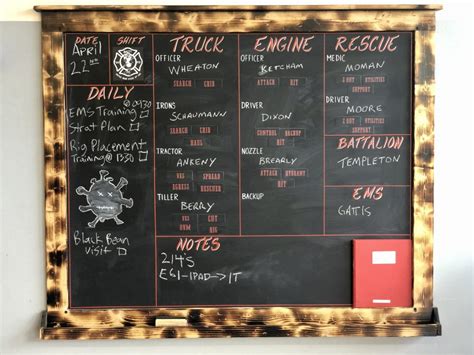 DATE
April
22nd
SHIFT
DAILY
EMS Training @ 0930
Strat Plan
Rig Placement
Training @ 1330
Black Bean
Visit
TRUCK
OFFICER
WHEATON
SEARCH CRIB
IRONS
SCHAUMANN
SEARCH CRIB
TRACTOR
ANKENY
VES SPREAD
EGRESS RESCUER
TILLER
BERRY
VES CUT
RIT
ENGINE
OFFICER
KETCHAM
ATTACK HIT
DRIVER
DIXON
CONTROL BACKUP
HIT
NOZZLE
BREARLY
ATTACK HYDRANT
HIT
BACKUP
RESCUE
MEDIC
MOMAN
2 OUT UTILITIES
SUPPORT
DRIVER
MOORE
2 OUT UTILITIES
SUPPORT
BATTALION
TEMPLETON
EMS
GATTIS
NOTES
214'S
E61-IPAD->IT